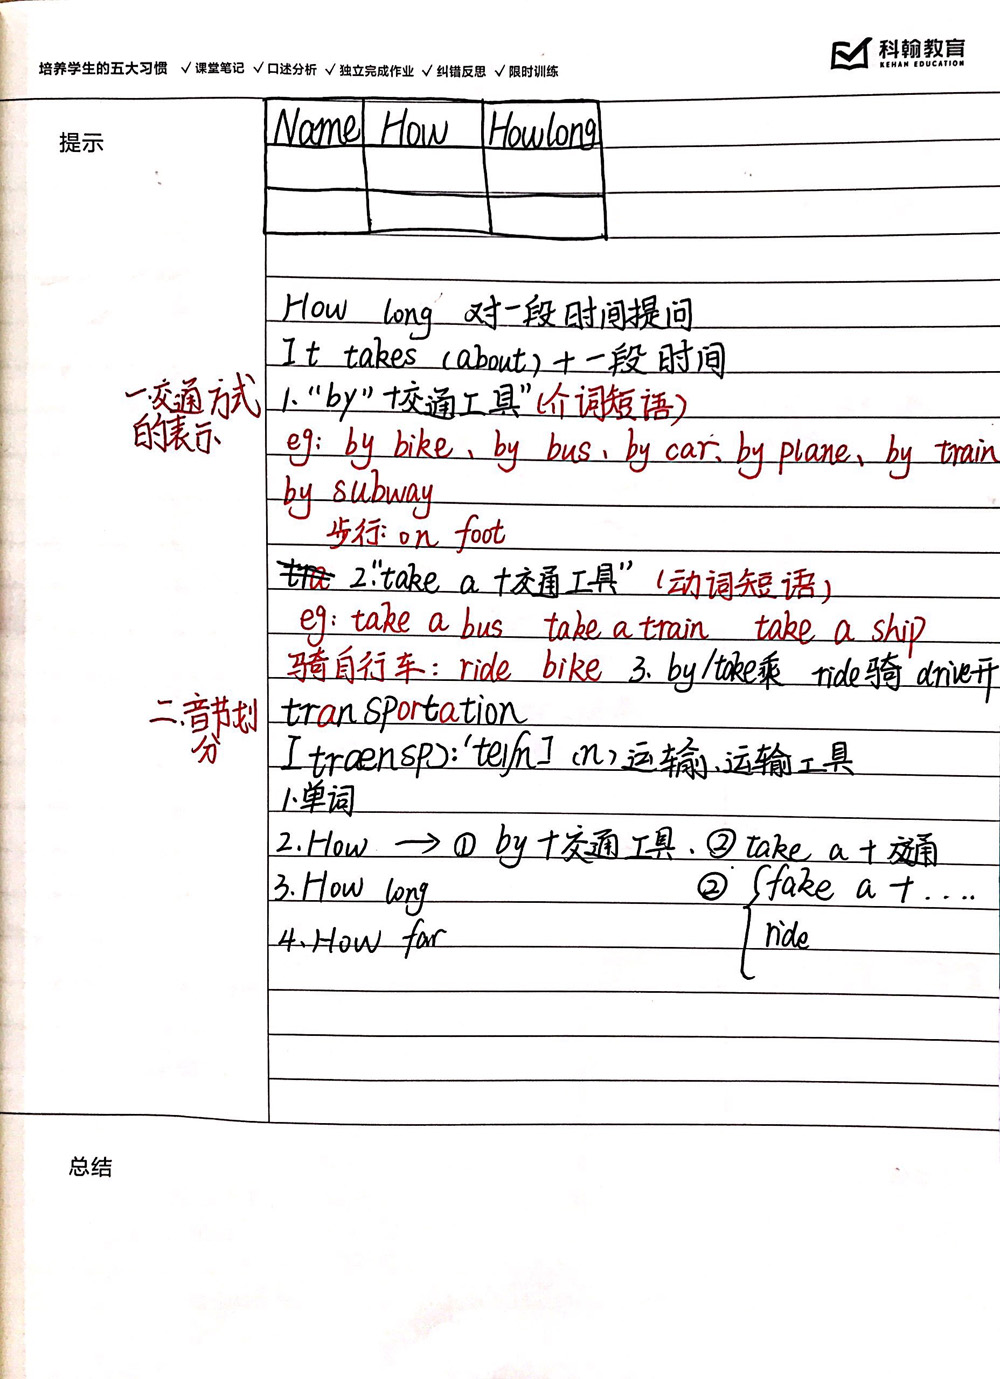 培养学生的五大习惯 √课堂笔记 √口述分析 √独立完成作业 √纠错反思 √限时训练
科翰教育
KEHAN EDUCATION
提示
Name How Howlong
How long 对一段时间提问
It takes (about) + 一段时间
一.交通方式的表示
1. "by" +交通工具" (介词短语)
eg: by bike、by bus、by car、by plane、by train
by subway
步行: on foot
2."take a +交通工具" (动词短语)
eg: take a bus take a train take a ship
骑自行车: ride bike 3. by/take乘 ride骑 drive开
二.音节划分
transportation
[trænspɔ:'teiʃn] (n) 运输、运输工具
1.单词
2.How → ① by +交通工具. ② take a + 交通
3.How long ② {take a + ....
4.How far ride
总结